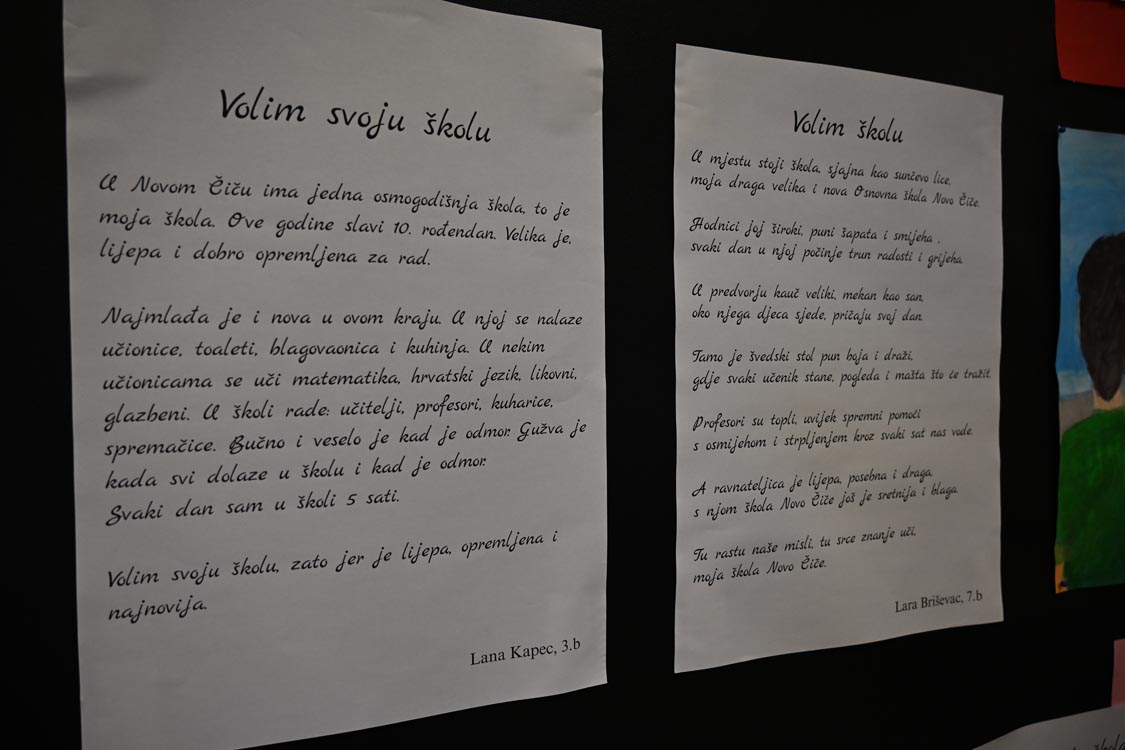 Volim svoju školu
U Novom Čiču ima jedna osmogodišnja škola, to je
moja škola. Ove godine slavi 10. rođendan. Velika je,
lijepa i dobro opremljena za rad.
Najmlađa je i nova u ovom kraju. U njoj se nalaze
učionice, toaleti, blagovaonica i kuhinja. U nekim
učionicama se uči matematika, hrvatski jezik, likovni,
glazbeni. U školi rade: učitelji, profesori, kuharice,
spremačice. Bučno i veselo je kad je odmor. Gužva je
kada svi dolaze u školu i kad je odmor.
Svaki dan sam u školi 5 sati.
Volim svoju školu, zato jer je lijepa, opremljena i
najnovija.
Lana Kapec, 3.b
Volim školu
U mjestu stoji škola, sjajna kao sunčevo lice,
moja draga velika i nova Osnovna škola Novo Čiče.
Hodnici joj široki, puni šapata i smijeha ,
svaki dan u njoj počinje trun radosti i grijeha.
U predvorju kauč veliki, mekan kao san,
oko njega djeca sjede, pričaju svoj dan.
Tamo je švedski stol pun boja i draži,
gdje svaki učenik stane, pogleda i mašta što će tražit.
Profesori su topli, uvijek spremni pomoći
s osmijehom i strpljenjem kroz svaki sat nas vode.
A ravnateljica je lijepa, posebna i draga,
s njom škola Novo Čiče još je sretnija i blaga.
Tu rastu naše misli, tu srce znanje uči,
moja škola Novo Čiče.
Lara Briševac, 7.b